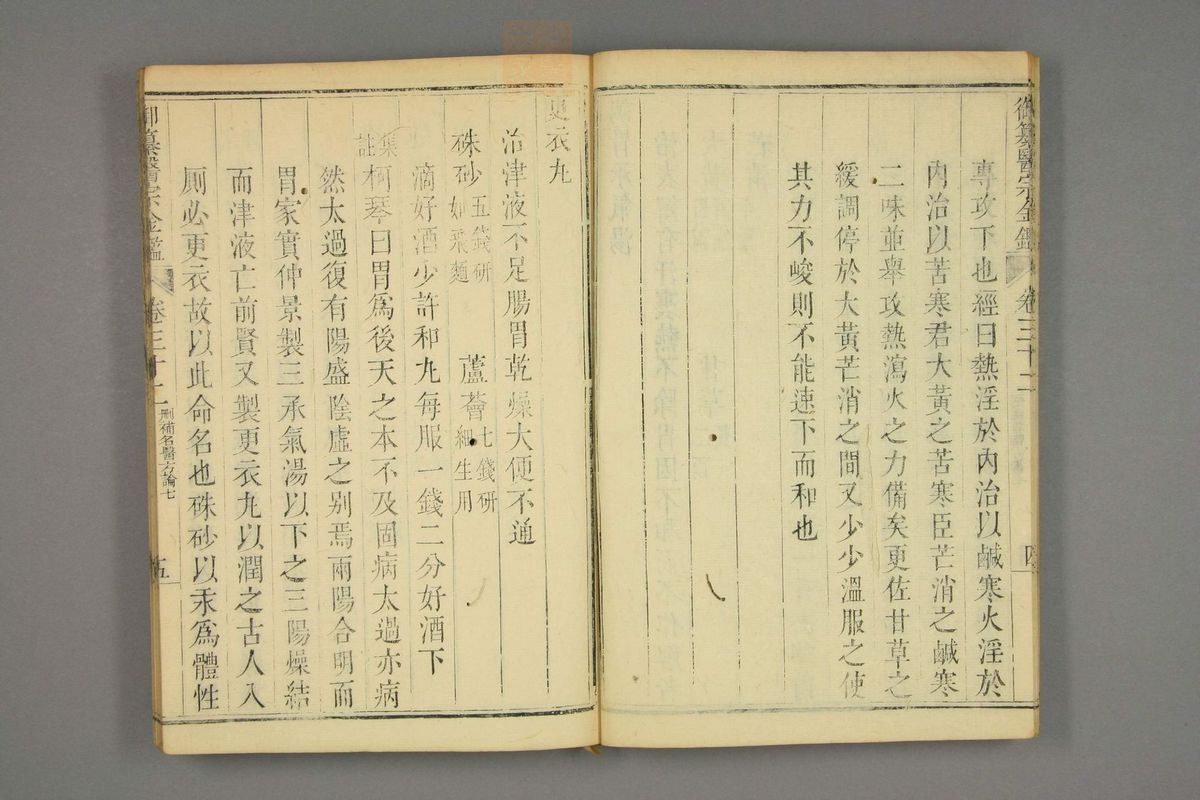 御纂醫宗金鑑 卷三十二 四
專攻下也經曰熱淫於內治以鹹寒火淫於
內治以苦寒君大黃之苦寒臣芒消之鹹寒
二味並舉攻熱瀉火之力備矣更佐甘草之
緩調停於大黃芒消之間又少少溫服之使
其力不峻則不能速下而和也
更衣丸
治津液不足腸胃乾燥大便不通
硃砂五錢研如飛麵 蘆薈七錢研細生用
滴好酒少許和丸每服一錢二分好酒下
集註柯琴曰胃為後天之本不及固病太過亦病
然太過復有陽盛陰虛之別焉兩陽合明而
胃家實仲景製三承氣湯以下之三陽燥結
而津液亡前賢又製更衣丸以潤之古人入
厠必更衣故以此命名也硃砂以汞為體性
御纂醫宗金鑑 卷三十二 刪補名醫方論七 五